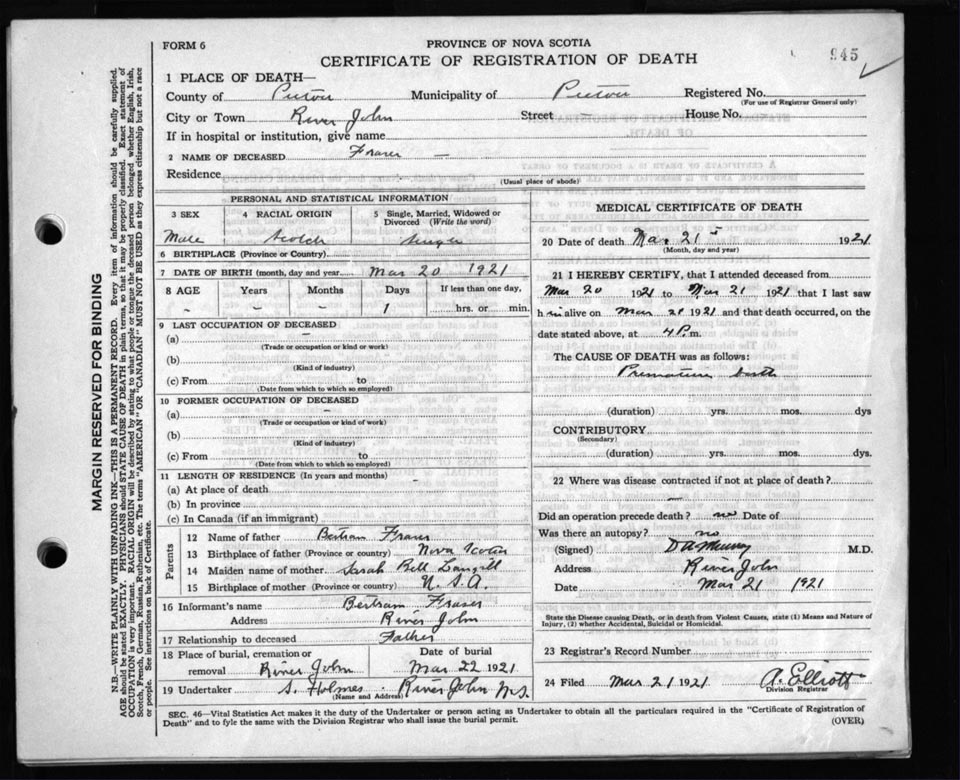 FORM 6
PROVINCE OF NOVA SCOTIA
CERTIFICATE OF REGISTRATION OF DEATH
945
1 PLACE OF DEATH—
County of Pictou Municipality of Pictou Registered No.
(For use of Registrar General only)
City or Town River John Street House No.
If in hospital or institution, give name
2 NAME OF DECEASED Fraser —
Residence
(Usual place of abode)
PERSONAL AND STATISTICAL INFORMATION
3 SEX 4 RACIAL ORIGIN 5 Single, Married, Widowed or Divorced (Write the word)
Male Scotch Single
6 BIRTHPLACE (Province or Country)
7 DATE OF BIRTH (month, day and year) Mar 20 1921
8 AGE Years Months Days If less than one day,
– – 1 hrs. or min.
9 LAST OCCUPATION OF DECEASED
(a) –
(Trade or occupation or kind or work)
(b)
(Kind of industry)
(c) From to
(Date from which to which so employed)
10 FORMER OCCUPATION OF DECEASED
(a) –
(Trade or occupation or kind of work)
(b)
(Kind of industry)
(c) From to
(Date from which to which so employed)
11 LENGTH OF RESIDENCE (In years and months)
(a) At place of death
(b) In province –
(c) In Canada (if an immigrant)
Parents
12 Name of father Bertram Fraser
13 Birthplace of father (Province or country) Nova Scotia
14 Maiden name of mother Sarah Bell Langill
15 Birthplace of mother (Province or country) U.S.A.
16 Informant's name Bertram Fraser
Address River John
17 Relationship to deceased Father
18 Place of burial, cremation or removal River John Date of burial Mar 22 1921
19 Undertaker S. Holmes River John N.S.
(Name and Address)
MEDICAL CERTIFICATE OF DEATH
20 Date of death Mar 21 1921
(Month, day and year)
21 I HEREBY CERTIFY, that I attended deceased from
Mar 20 1921 to Mar 21 1921 that I last saw
him alive on Mar 21 1921 and that death occurred, on the
date stated above, at 4 P.m.
The CAUSE OF DEATH was as follows:
Premature birth
(duration) yrs. mos. dys
CONTRIBUTORY
(Secondary)
(duration) yrs. mos. dys.
22 Where was disease contracted if not at place of death?
—
Did an operation precede death? no Date of
Was there an autopsy? no
(Signed) D A Murray M.D.
Address River John
Date Mar 21 1921
State the Disease causing Death, or in death from Violent Causes, state (1) Means and Nature of
Injury, (2) whether Accidental, Suicidal or Homicidal.
23 Registrar's Record Number
24 Filed Mar 21 1921 A. Elliott
Division Registrar
SEC. 46—Vital Statistics Act makes it the duty of the Undertaker or person acting as Undertaker to obtain all the particulars required in the "Certificate of Registration of
Death" and to fyle the same with the Division Registrar who shall issue the burial permit.
(OVER)
MARGIN RESERVED FOR BINDING
N.B.—WRITE PLAINLY WITH UNFADING INK—THIS IS A PERMANENT RECORD. Every item of information should be carefully supplied.
AGE should be stated EXACTLY. PHYSICIANS should STATE CAUSE OF DEATH in plain terms, so that it may be properly classified. Exact statement of
OCCUPATION is very important. RACIAL ORIGIN will be described by stating to what people or tongue the deceased person belonged whether English, Irish,
Scotch, French, German, Russian, Ruthenian, etc. The terms "AMERICAN" OR "CANADIAN" MUST NOT BE USED as they express citizenship but not a race
or people. See instructions on back of Certificate.